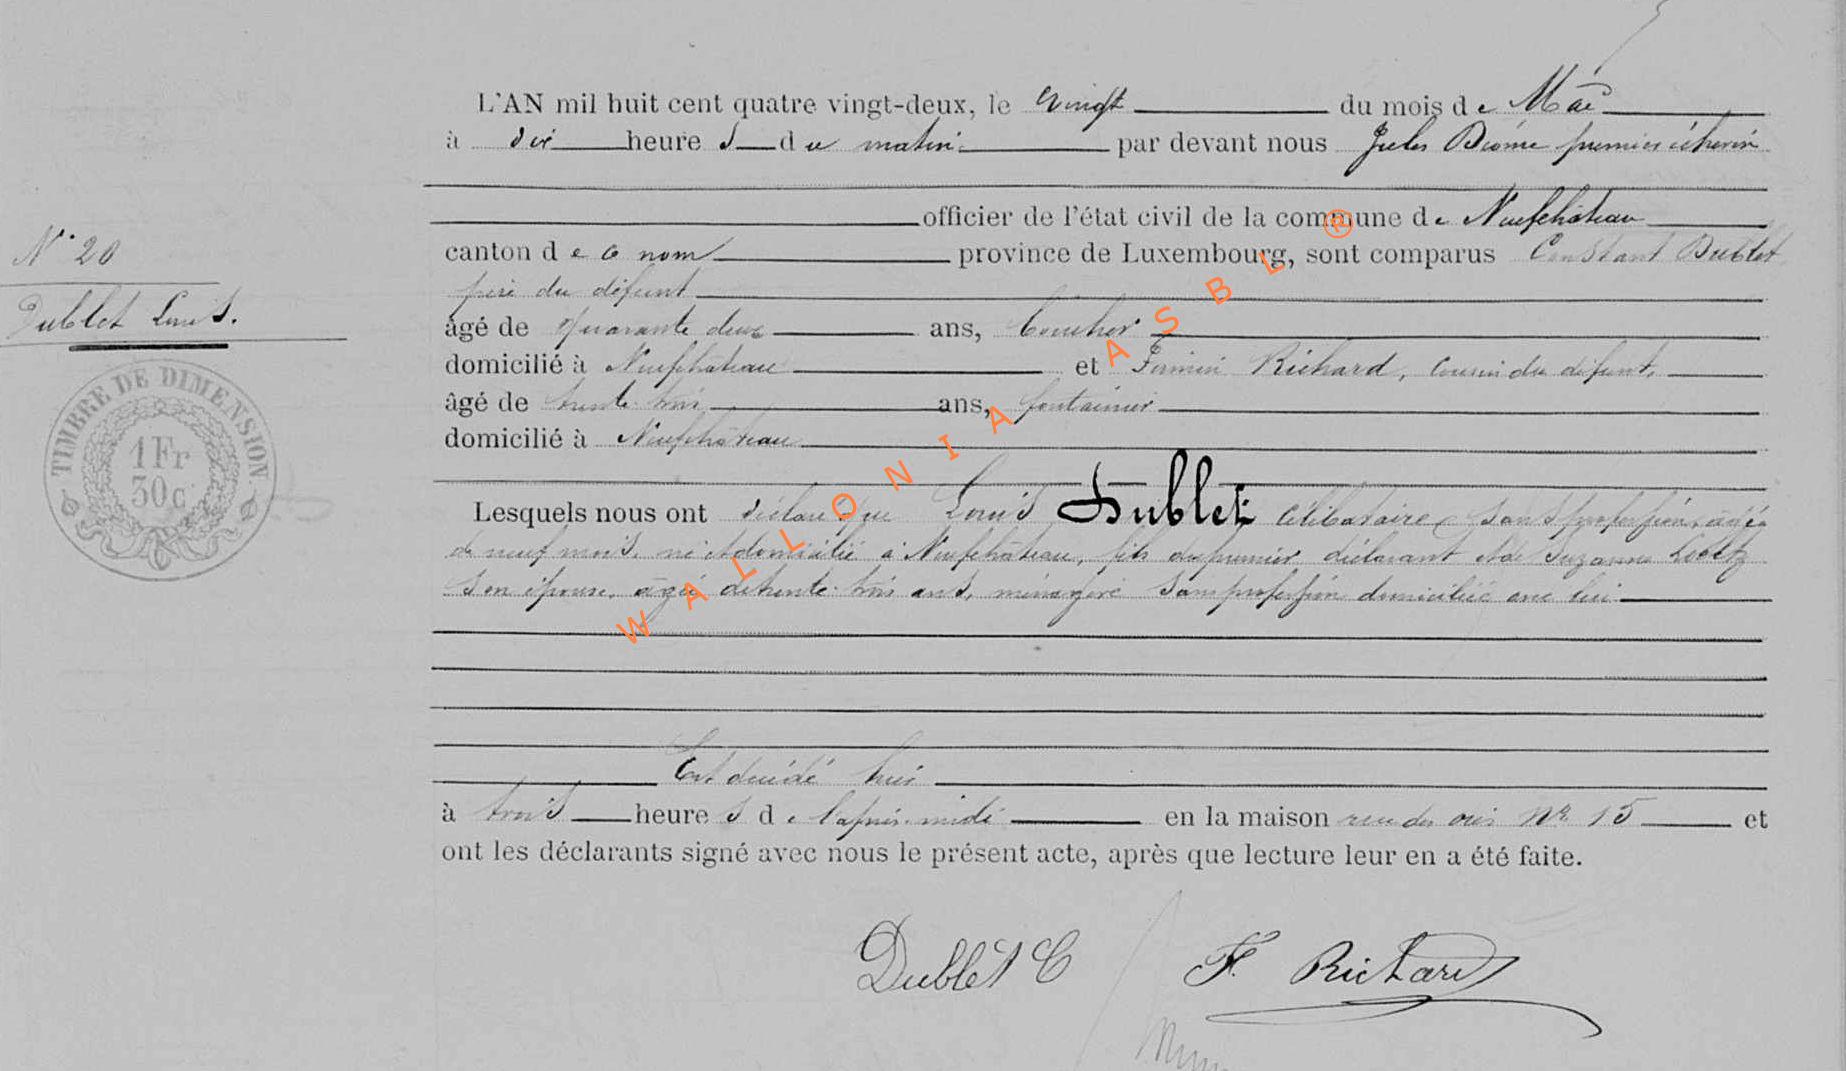 L'AN mil huit cent quatre vingt-deux, le vingt du mois de Mai
à dix heures du matin par devant nous Jules premier échevin
officier de l'état civil de la commune de Neufchâteau
canton de ce nom province de Luxembourg, sont comparus Constant Dublet
père du défunt
âgé de quarante deux ans,
domicilié à Neufchâteau et Firmin Richard, cousin du défunt,
âgé de trente trois ans, fontainier
domicilié à Neufchâteau
Lesquels nous ont déclaré que Louis Dublet célibataire, sans profession, âgé
de neuf mois, né et domicilié à Neufchâteau, fils du premier déclarant et de Suzanne
son épouse, âgée de trente trois ans, ménagère sans profession domiciliée avec lui
Est décédé hier
à trois heures de l'après-midi en la maison rue des Nr 15 et
ont les déclarants signé avec nous le présent acte, après que lecture leur en a été faite.
Dublet C F. Richard
N° 20
Dublet Louis.
TIMBRE DE DIMENSION
1 Fr
30 c
WALLONIA ASBL ®